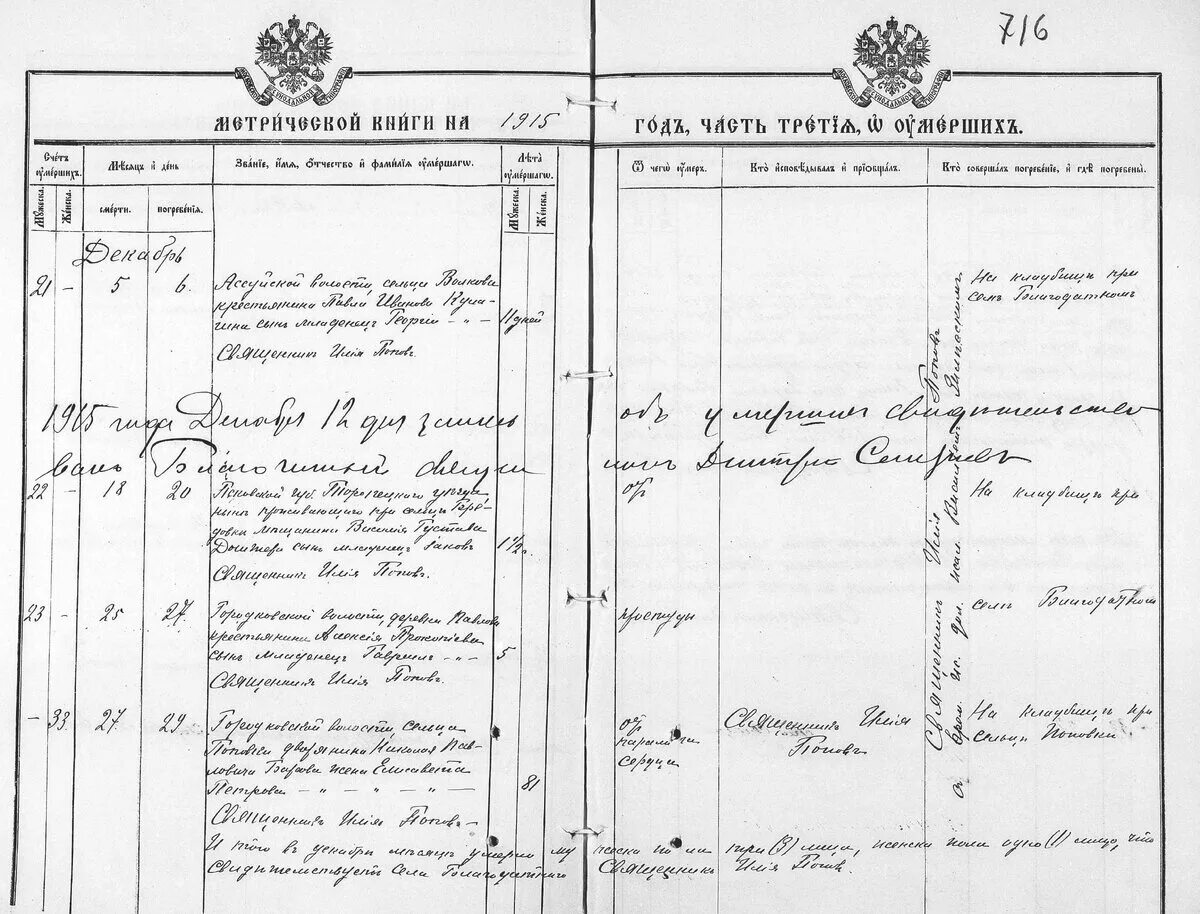 716
МЕТРИЧЕСКОЙ КНИГИ НА 1915 ГОДЪ, ЧАСТЬ ТРЕТІЯ, Ѿ ОУМЕРШИХЪ.
Счетъ оумершихъ.
Мѣсяцъ и день
Званіе, имя, отчество и фамилія оумершагѡ.
Лѣта оумершагѡ.
Ѿ чегѡ оумеръ.
Кто исповѣдывалъ и пріобщалъ.
Кто совершалъ погребеніе, и гдѣ погребены.
Мужеска.
Женска.
смерти.
погребенія.
Мужеска.
Женска.
Декабрь
21 - 5 6. волости, сельца Волкова
крестьянина Павла Иванова Кула-
гина сынъ младенецъ Георгій - „ - 11 дней
Священникъ Илія Поповъ.
На кладбищѣ при
селѣ Благодатномъ
1915 года Декабря 12 дня объ умершихъ свидѣтельство
валъ Благочинный Димитрій
22 - 18 20 Псковской губ. Торопецкаго уѣзда
проживающаго при сельцѣ
мѣщанина Василія Густава
сынъ младенецъ Іаковъ 1 1/2
Священникъ Илія Поповъ.
отъ
На кладбищѣ при
23 - 25 27. Городковской волости, деревни Павлова
крестьянина Алексія Прокопіева
сынъ младенецъ Гавріилъ - „ - 5
Священникъ Илія Поповъ.
простуды
селѣ Благодатномъ
- 33 27. 29. Городковской волости, сельца
Поповки дворянина Николая Пав-
ловича жена Елисавета
Петрова - „ - „ - „ - „ - 81
Священникъ Илія Поповъ -
отъ
паралича
сердца
Священникъ Илія
Поповъ
На кладбищѣ при
сельцѣ Поповки
Священникъ Илія Поповъ
Итого въ декабрѣ мѣсяцѣ умерло мужеска пола три (3) лица, женска пола одно (1) лицо, что
свидѣтельствуетъ села Благодатнаго Священникъ Илія Поповъ.